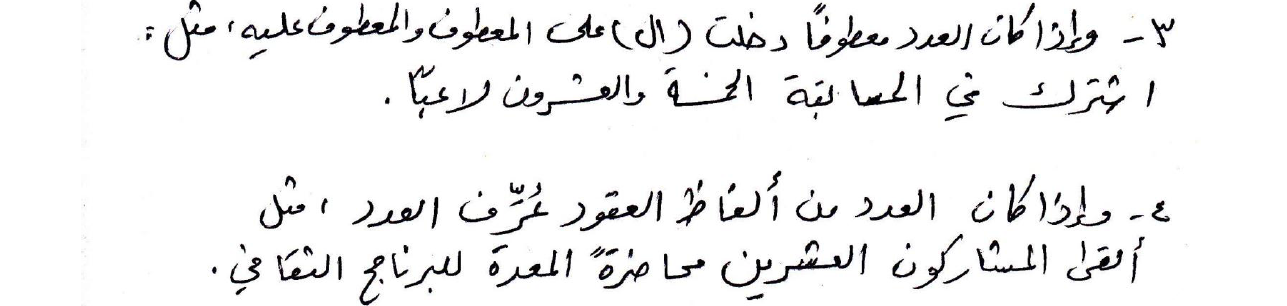 ٣- وإذا كان العدد معطوفًا دخلت (ال) على المعطوف والمعطوف عليه، مثل:
اشترك في المسابقة الخمسة والعشرون لاعبًا.
٤- وإذا كان العدد من ألفاظ العقود عُرِّف العدد، مثل
ألقى المشاركون العشرين محاضرةً المعدة للبرنامج الثقافي.